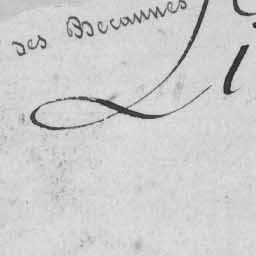 des Becannes